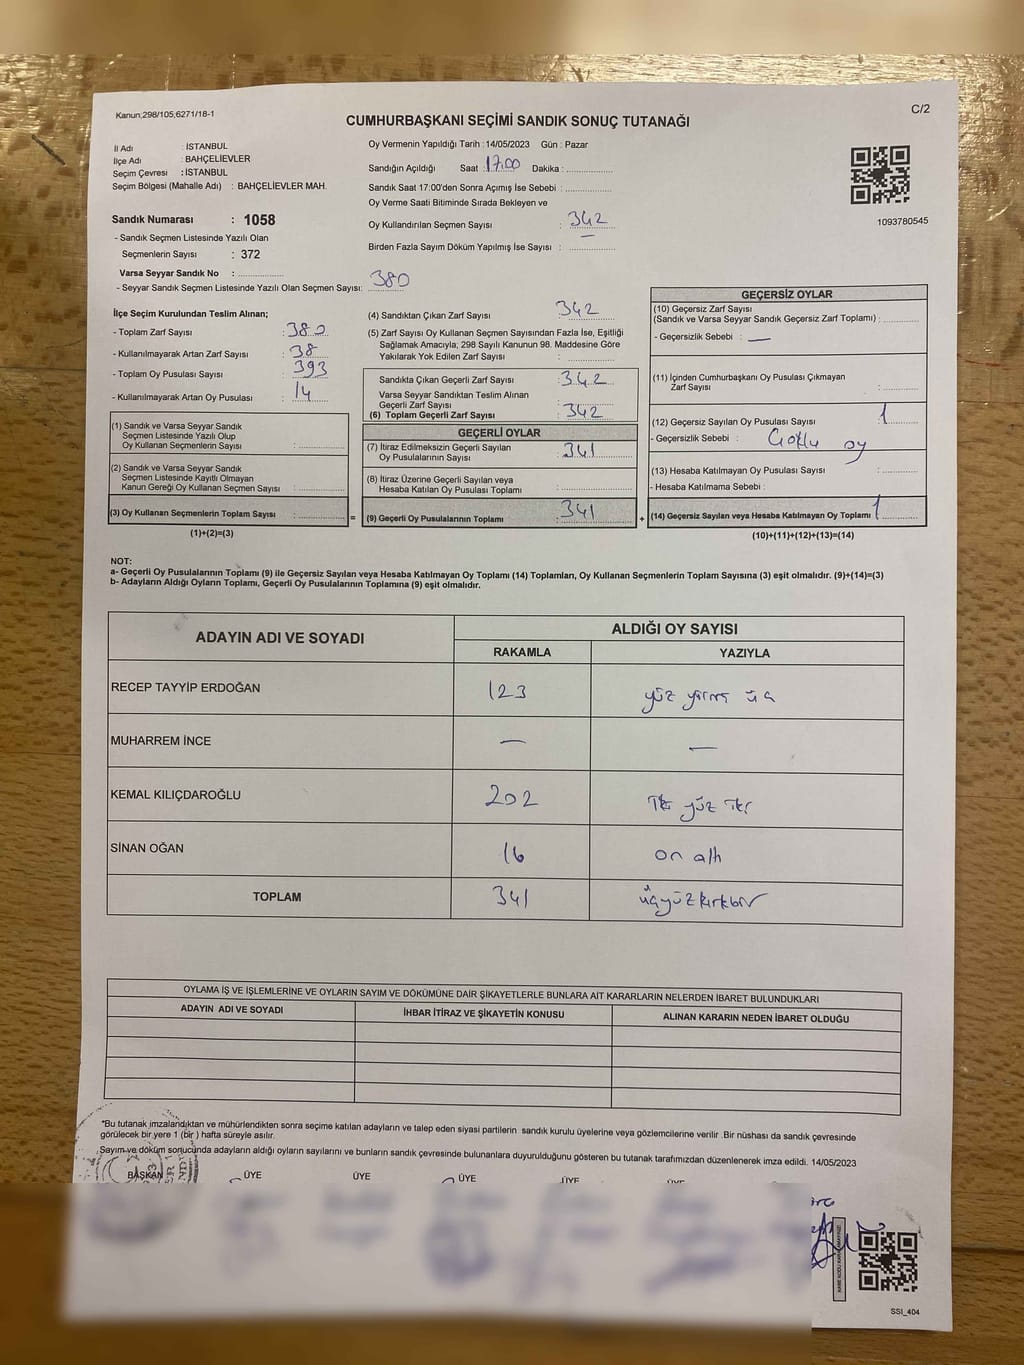 Kanun;298/105;6271/18-1
C/2
CUMHURBAŞKANI SEÇİMİ SANDIK SONUÇ TUTANAĞI
İl Adı : İSTANBUL
İlçe Adı : BAHÇELİEVLER
Seçim Çevresi : İSTANBUL
Seçim Bölgesi (Mahalle Adı) : BAHÇELİEVLER MAH.
Sandık Numarası : 1058
- Sandık Seçmen Listesinde Yazılı Olan
Seçmenlerin Sayısı : 372
Varsa Seyyar Sandık No :
- Seyyar Sandık Seçmen Listesinde Yazılı Olan Seçmen Sayısı: 380
Oy Vermenin Yapıldığı Tarih : 14/05/2023 Gün : Pazar
Sandığın Açıldığı Saat 17:00 Dakika :
Sandık Saat 17:00'den Sonra Açımış İse Sebebi :
Oy Verme Saati Bitiminde Sırada Bekleyen ve
Oy Kullandırılan Seçmen Sayısı : 342
Birden Fazla Sayım Döküm Yapılmış İse Sayısı : —
1093780545
İlçe Seçim Kurulundan Teslim Alınan;
- Toplam Zarf Sayısı : 380
- Kullanılmayarak Artan Zarf Sayısı : 38
- Toplam Oy Pusulası Sayısı : 393
- Kullanılmayarak Artan Oy Pusulası : 14
(1) Sandık ve Varsa Seyyar Sandık
Seçmen Listesinde Yazılı Olup
Oy Kullanan Seçmenlerin Sayısı :
(2) Sandık ve Varsa Seyyar Sandık
Seçmen Listesinde Kayıtlı Olmayan
Kanun Gereği Oy Kullanan Seçmen Sayısı :
(3) Oy Kullanan Seçmenlerin Toplam Sayısı :
(1)+(2)=(3)
=
(4) Sandıktan Çıkan Zarf Sayısı : 342
(5) Zarf Sayısı Oy Kullanan Seçmen Sayısından Fazla İse, Eşitliği
Sağlamak Amacıyla; 298 Sayılı Kanunun 98. Maddesine Göre
Yakılarak Yok Edilen Zarf Sayısı :
Sandıkta Çıkan Geçerli Zarf Sayısı : 342
Varsa Seyyar Sandıktan Teslim Alınan
Geçerli Zarf Sayısı :
(6) Toplam Geçerli Zarf Sayısı : 342
GEÇERLİ OYLAR
(7) İtiraz Edilmeksizin Geçerli Sayılan
Oy Pusulalarının Sayısı : 341
(8) İtiraz Üzerine Geçerli Sayılan veya
Hesaba Katılan Oy Pusulası Toplamı :
(9) Geçerli Oy Pusulalarının Toplamı : 341
+
GEÇERSİZ OYLAR
(10) Geçersiz Zarf Sayısı
(Sandık ve Varsa Seyyar Sandık Geçersiz Zarf Toplamı) :
- Geçersizlik Sebebi : —
(11) İçinden Cumhurbaşkanı Oy Pusulası Çıkmayan
Zarf Sayısı :
(12) Geçersiz Sayılan Oy Pusulası Sayısı : 1
- Geçersizlik Sebebi : oy
(13) Hesaba Katılmayan Oy Pusulası Sayısı :
- Hesaba Katılmama Sebebi :
(14) Geçersiz Sayılan veya Hesaba Katılmayan Oy Toplamı 1
(10)+(11)+(12)+(13)=(14)
NOT:
a- Geçerli Oy Pusulalarının Toplamı (9) ile Geçersiz Sayılan veya Hesaba Katılmayan Oy Toplamı (14) Toplamları, Oy Kullanan Seçmenlerin Toplam Sayısına (3) eşit olmalıdır. (9)+(14)=(3)
b- Adayların Aldığı Oyların Toplamı, Geçerli Oy Pusulalarının Toplamına (9) eşit olmalıdır.
ADAYIN ADI VE SOYADI ALDIĞI OY SAYISI
RAKAMLA YAZIYLA
RECEP TAYYİP ERDOĞAN 123 yüz yirmi üç
MUHARREM İNCE — —
KEMAL KILIÇDAROĞLU 202 iki yüz iki
SİNAN OĞAN 16 on altı
TOPLAM 341 üçyüzkırkbir
OYLAMA İŞ VE İŞLEMLERİNE VE OYLARIN SAYIM VE DÖKÜMÜNE DAİR ŞİKAYETLERLE BUNLARA AİT KARARLARIN NELERDEN İBARET BULUNDUKLARI
ADAYIN ADI VE SOYADI İHBAR İTİRAZ VE ŞİKAYETİN KONUSU ALINAN KARARIN NEDEN İBARET OLDUĞU
"Bu tutanak imzalandıktan ve mühürlendikten sonra seçime katılan adayların ve talep eden siyasi partilerin sandık kurulu üyelerine veya gözlemcilerine verilir .Bir nüshası da sandık çevresinde
görülecek bir yere 1 (bir ) hafta süreyle asılır.
Sayım ve döküm sonucunda adayların aldığı oyların sayılarını ve bunların sandık çevresinde bulunanlara duyurulduğunu gösteren bu tutanak tarafımızdan düzenlenerek imza edildi. 14/05/2023
BAŞKAN ÜYE ÜYE ÜYE ÜYE ÜYE
SSI_404